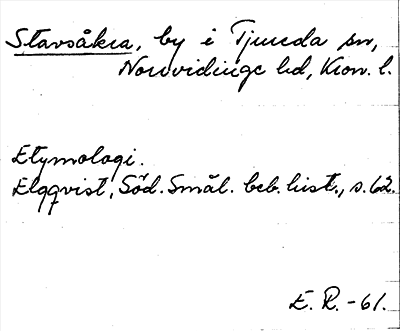 Stavsåkra, by i Tjureda sn,
Norrvidinge hd, Kron. l.
Etymologi.
Elgqvist, Söd. Smål. beb. hist., s. 62.
E. R. -61.